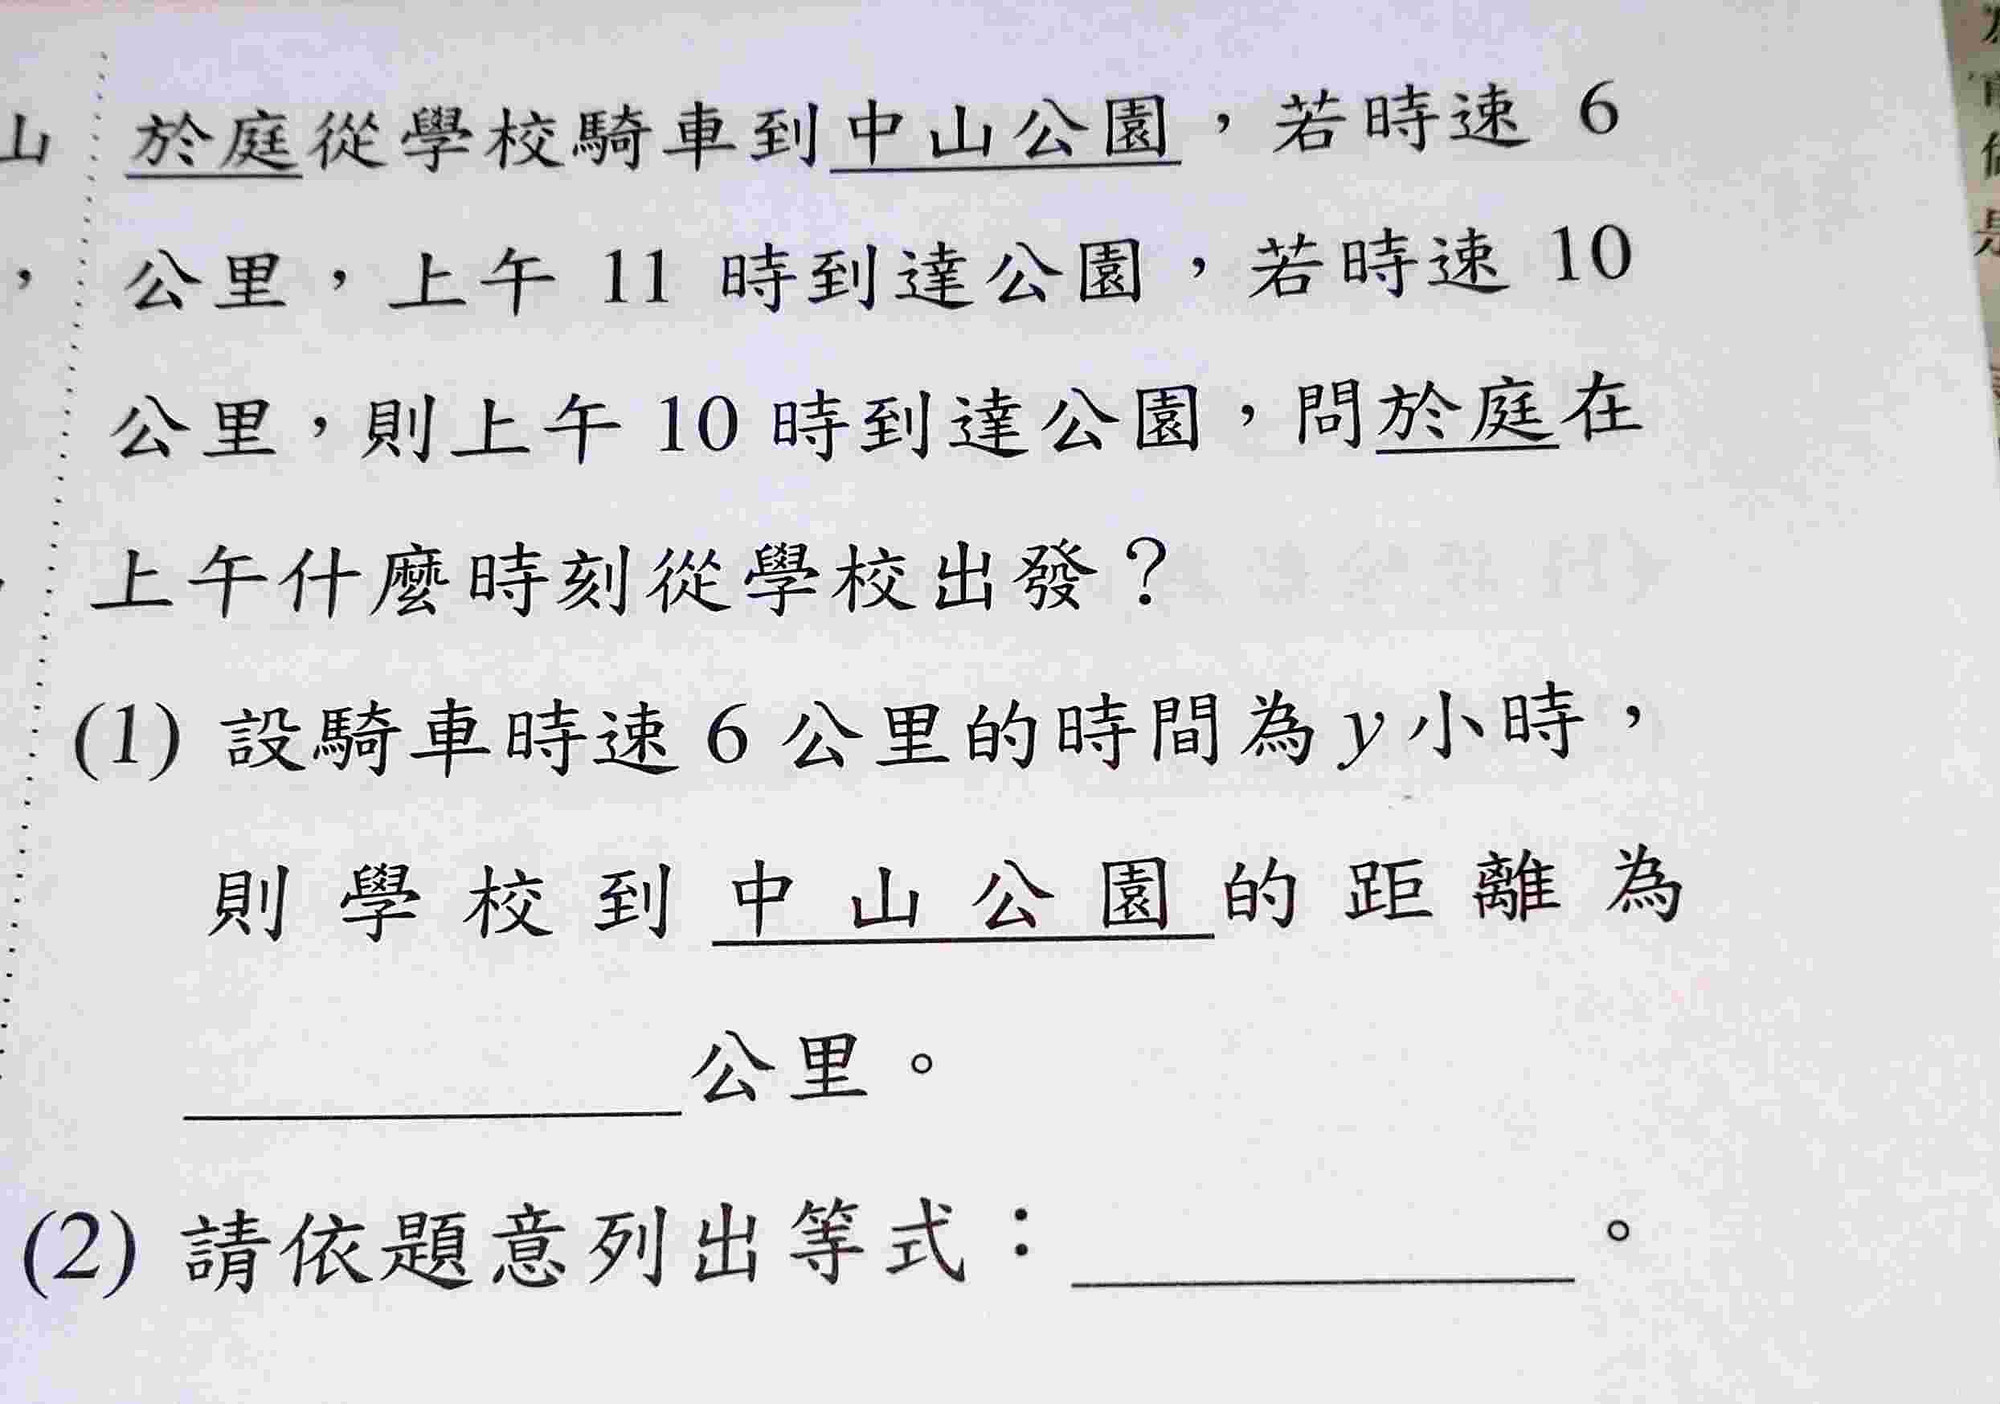 於庭從學校騎車到中山公園，若時速 6
公里，上午 11 時到達公園，若時速 10
公里，則上午 10 時到達公園，問於庭在
上午什麼時刻從學校出發？
(1) 設騎車時速 6 公里的時間為 y 小時，
則學校到中山公園的距離為
公里。
(2) 請依題意列出等式：。
山
，